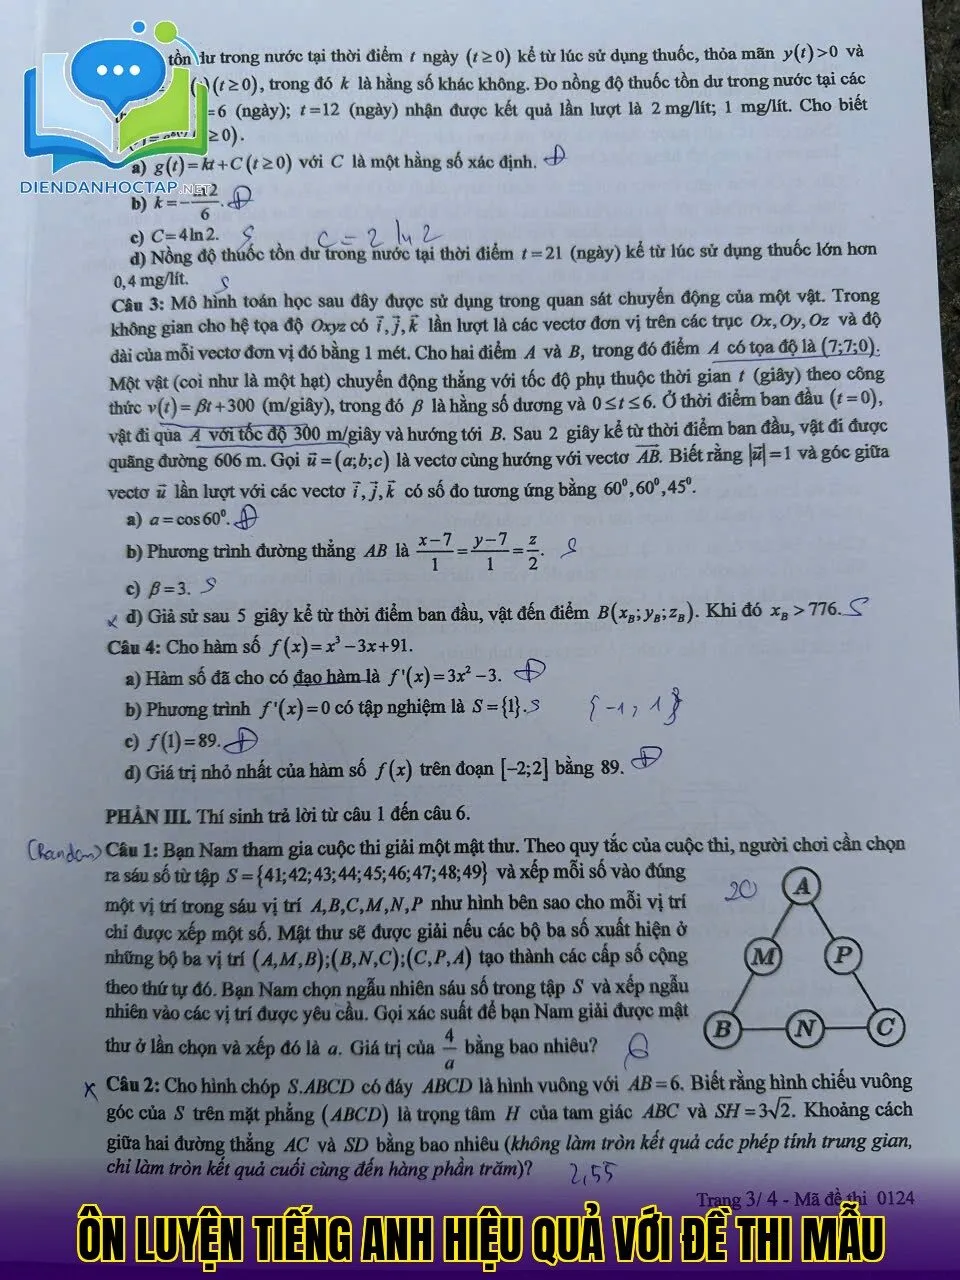 tồn dư trong nước tại thời điểm t ngày (t≥0) kể từ lúc sử dụng thuốc, thỏa mãn y(t)>0 và
(t≥0), trong đó k là hằng số khác không. Đo nồng độ thuốc tồn dư trong nước tại các
=6 (ngày); t=12 (ngày) nhận được kết quả lần lượt là 2 mg/lít; 1 mg/lít. Cho biết
≥0).
a) g(t)=kt+C (t≥0) với C là một hằng số xác định. Đ
DIENDANHOCTAP.NET
b) k=-ln2/6. Đ
c) C=4ln2. S C=2 ln2
d) Nồng độ thuốc tồn dư trong nước tại thời điểm t=21 (ngày) kể từ lúc sử dụng thuốc lớn hơn
0,4 mg/lít. S
Câu 3: Mô hình toán học sau đây được sử dụng trong quan sát chuyển động của một vật. Trong
không gian cho hệ tọa độ Oxyz có i⃗,j⃗,k⃗ lần lượt là các vectơ đơn vị trên các trục Ox,Oy,Oz và độ
dài của mỗi vectơ đơn vị đó bằng 1 mét. Cho hai điểm A và B, trong đó điểm A có tọa độ là (7;7;0).
Một vật (coi như là một hạt) chuyển động thẳng với tốc độ phụ thuộc thời gian t (giây) theo công
thức v(t)=βt+300 (m/giây), trong đó β là hằng số dương và 0≤t≤6. Ở thời điểm ban đầu (t=0),
vật đi qua A với tốc độ 300 m/giây và hướng tới B. Sau 2 giây kể từ thời điểm ban đầu, vật đi được
quãng đường 606 m. Gọi u⃗=(a;b;c) là vectơ cùng hướng với vectơ AB⃗. Biết rằng |u⃗|=1 và góc giữa
vectơ u⃗ lần lượt với các vectơ i⃗,j⃗,k⃗ có số đo tương ứng bằng 60⁰,60⁰,45⁰.
a) a=cos60⁰. Đ
b) Phương trình đường thẳng AB là (x-7)/1=(y-7)/1=z/2. S
c) β=3. S
x d) Giả sử sau 5 giây kể từ thời điểm ban đầu, vật đến điểm B(x_B;y_B;z_B). Khi đó x_B>776. S
Câu 4: Cho hàm số f(x)=x³-3x+91.
a) Hàm số đã cho có đạo hàm là f'(x)=3x²-3. Đ
b) Phương trình f'(x)=0 có tập nghiệm là S={1}. S {-1, 1}
c) f(1)=89. Đ
d) Giá trị nhỏ nhất của hàm số f(x) trên đoạn [-2;2] bằng 89. Đ
PHẦN III. Thí sinh trả lời từ câu 1 đến câu 6.
(Random) Câu 1: Bạn Nam tham gia cuộc thi giải một mật thư. Theo quy tắc của cuộc thi, người chơi cần chọn
ra sáu số từ tập S={41;42;43;44;45;46;47;48;49} và xếp mỗi số vào đúng
một vị trí trong sáu vị trí A,B,C,M,N,P như hình bên sao cho mỗi vị trí
chỉ được xếp một số. Mật thư sẽ được giải nếu các bộ ba số xuất hiện ở
những bộ ba vị trí (A,M,B);(B,N,C);(C,P,A) tạo thành các cấp số cộng
theo thứ tự đó. Bạn Nam chọn ngẫu nhiên sáu số trong tập S và xếp ngẫu
nhiên vào các vị trí được yêu cầu. Gọi xác suất để bạn Nam giải được mật
thư ở lần chọn và xếp đó là a. Giá trị của 4/a bằng bao nhiêu?
20
A
M P
B N C
x Câu 2: Cho hình chóp S.ABCD có đáy ABCD là hình vuông với AB=6. Biết rằng hình chiếu vuông
góc của S trên mặt phẳng (ABCD) là trọng tâm H của tam giác ABC và SH=3√2. Khoảng cách
giữa hai đường thẳng AC và SD bằng bao nhiêu (không làm tròn kết quả các phép tính trung gian,
chỉ làm tròn kết quả cuối cùng đến hàng phần trăm)? 2,55
Trang 3/4 - Mã đề thi 0124
ÔN LUYỆN TIẾNG ANH HIỆU QUẢ VỚI ĐỀ THI MẪU